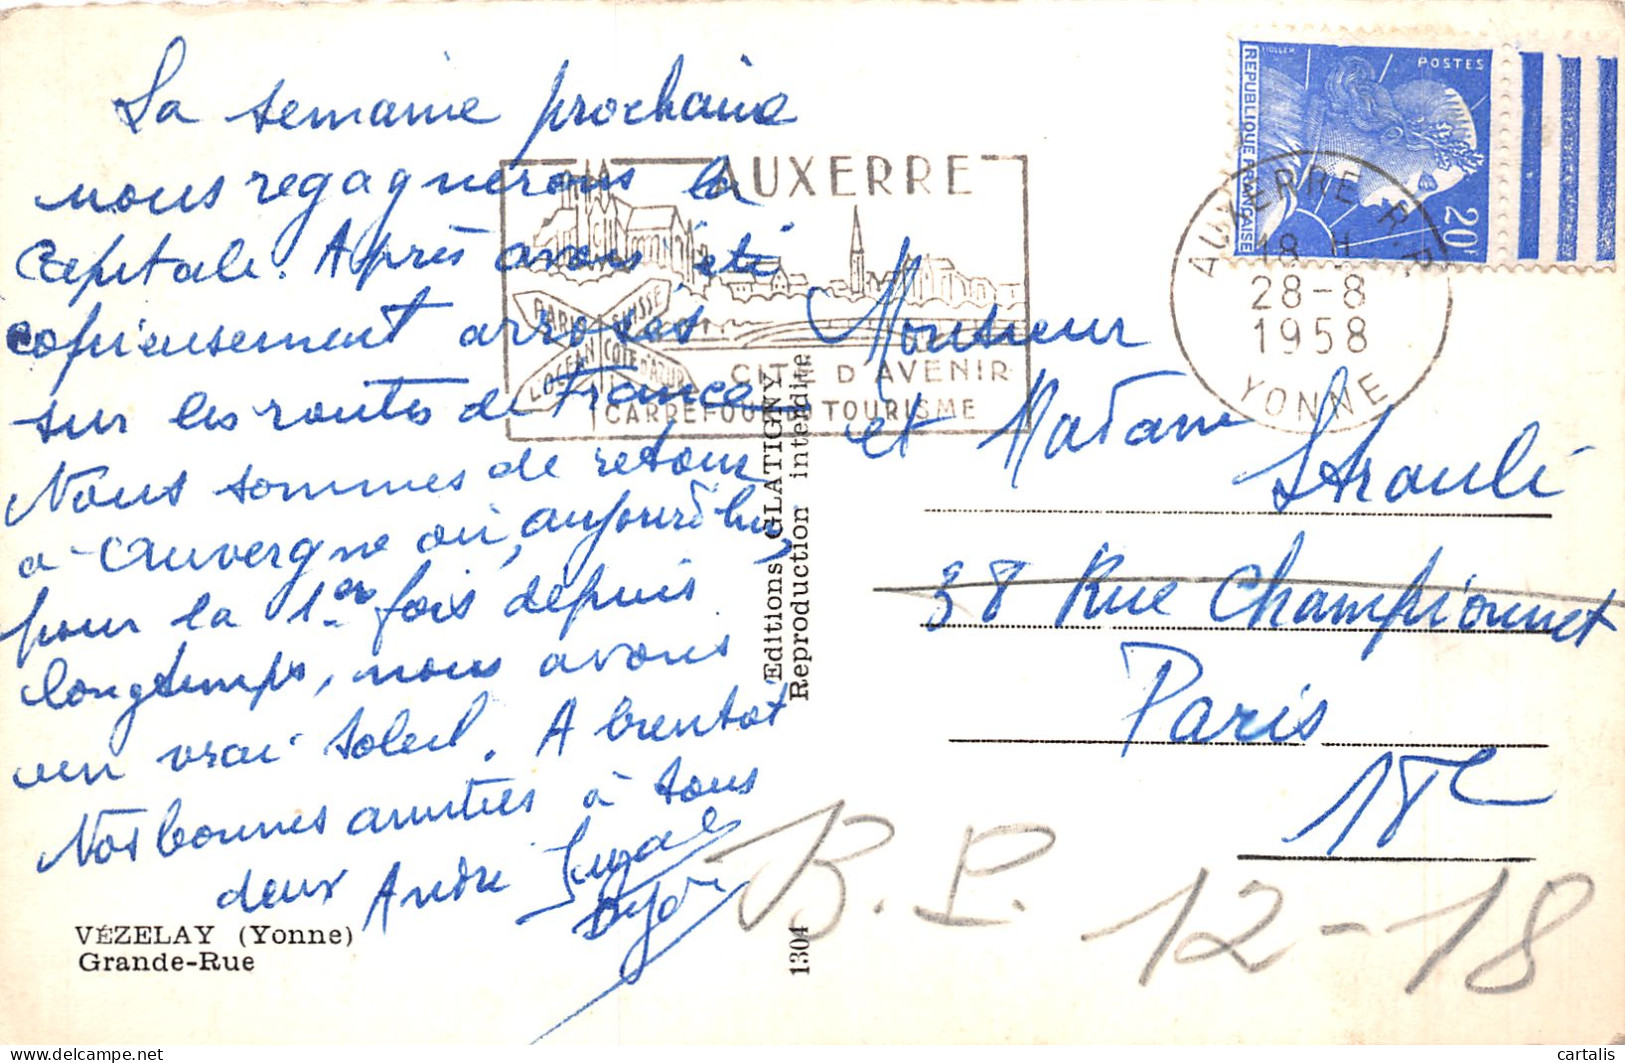 La semaine prochaine
nous regagnerons la
Capitale. Après avoir été
copieusement arrosés
sur les routes de France,
Nous sommes de retour
d'Auvergne où, aujourd'hui,
pour la 1ère fois depuis
longtemps, nous avons
un vrai soleil. A bientot
Nos bonnes amitiés à tous
deux André
VÉZELAY (Yonne)
Grande-Rue
AUXERRE
PARIS
SUISSE
L'OCEAN
COTE D'AZUR
CITE D'AVENIR
CARREFOUR TOURISME
Editions GLATIGNY
Reproduction interdite
1304
REPUBLIQUE FRANÇAISE
POSTES
20F
AUXERRE R.P.
18 H
28-8
1958
YONNE
Monsieur
et Madame
38 Rue Championnet
Paris
18e
B.P. 12-18
cartalis